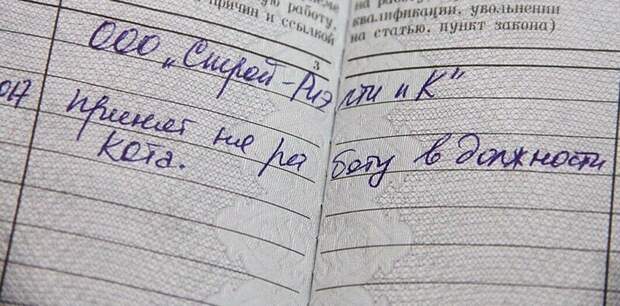 ую работу,
причин и ссылкой
3
на работу,
квалификации, увольнении
на статью, пункт закона)
ООО „Строй-Риэлти и К"
017 принят на работу в должности
Кота.